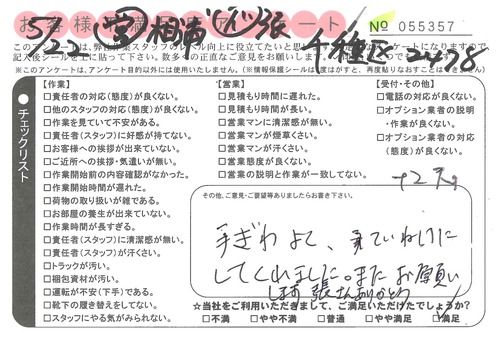 お客様満足アンケート
No 055357
5/22 営 相浦 張 千種区 2478
このアンケートは、弊社作業スタッフのレベル向上に役立てたいと思い
記入後シールを上に貼って下さい。数多くの正直なご意見をお願いします。
※このアンケートは、アンケート目的以外には使用いたしません。(※情報保護シールは一度はがすと、再度貼りなおすことはできません)
●チェックリスト
【作業】
□責任者の対応(態度)が良くない。
□他のスタッフの対応(態度)が良くない。
□作業を見ていて不安がある。
□責任者(スタッフ)に好感が持てない。
□お客様への挨拶が出来ていない。
□ご近所への挨拶・気遣いが無い。
□作業開始前の内容確認がなかった。
□作業開始時間が遅れた。
□荷物の取り扱いが雑である。
□お部屋の養生が出来ていない。
□作業時間が長すぎる。
□責任者(スタッフ)に清潔感が無い。
□責任者(スタッフ)が汗くさい。
□トラックが汚い。
□梱包資材が汚い。
□運転が不安(下手)である。
□靴下の履き替えをしてない。
□スタッフにやる気がみられない。
【営業】
□見積もり時間に遅れた。
□見積もり時間が長い。
□営業マンに清潔感が無い。
□営業マンが煙草くさい。
□営業マンが汗くさい。
□営業態度が良くない。
□営業の説明と作業が一致してない。
【受付・その他】
□電話の対応が良くない。
□オプション業者の説明
・作業が良くない。
□オプション業者の対応
(態度)が良くない。
+2点
その他、ご意見・ご要望等ありましたらお書き下さい。
手ぎわよく、ていねいに
してくれました。またお願い
します 張さんありがとう
☆当社をご利用いただきまして、ご満足いただけたでしょうか?
□不満 □やや不満 □普通 □やや満足 □満足